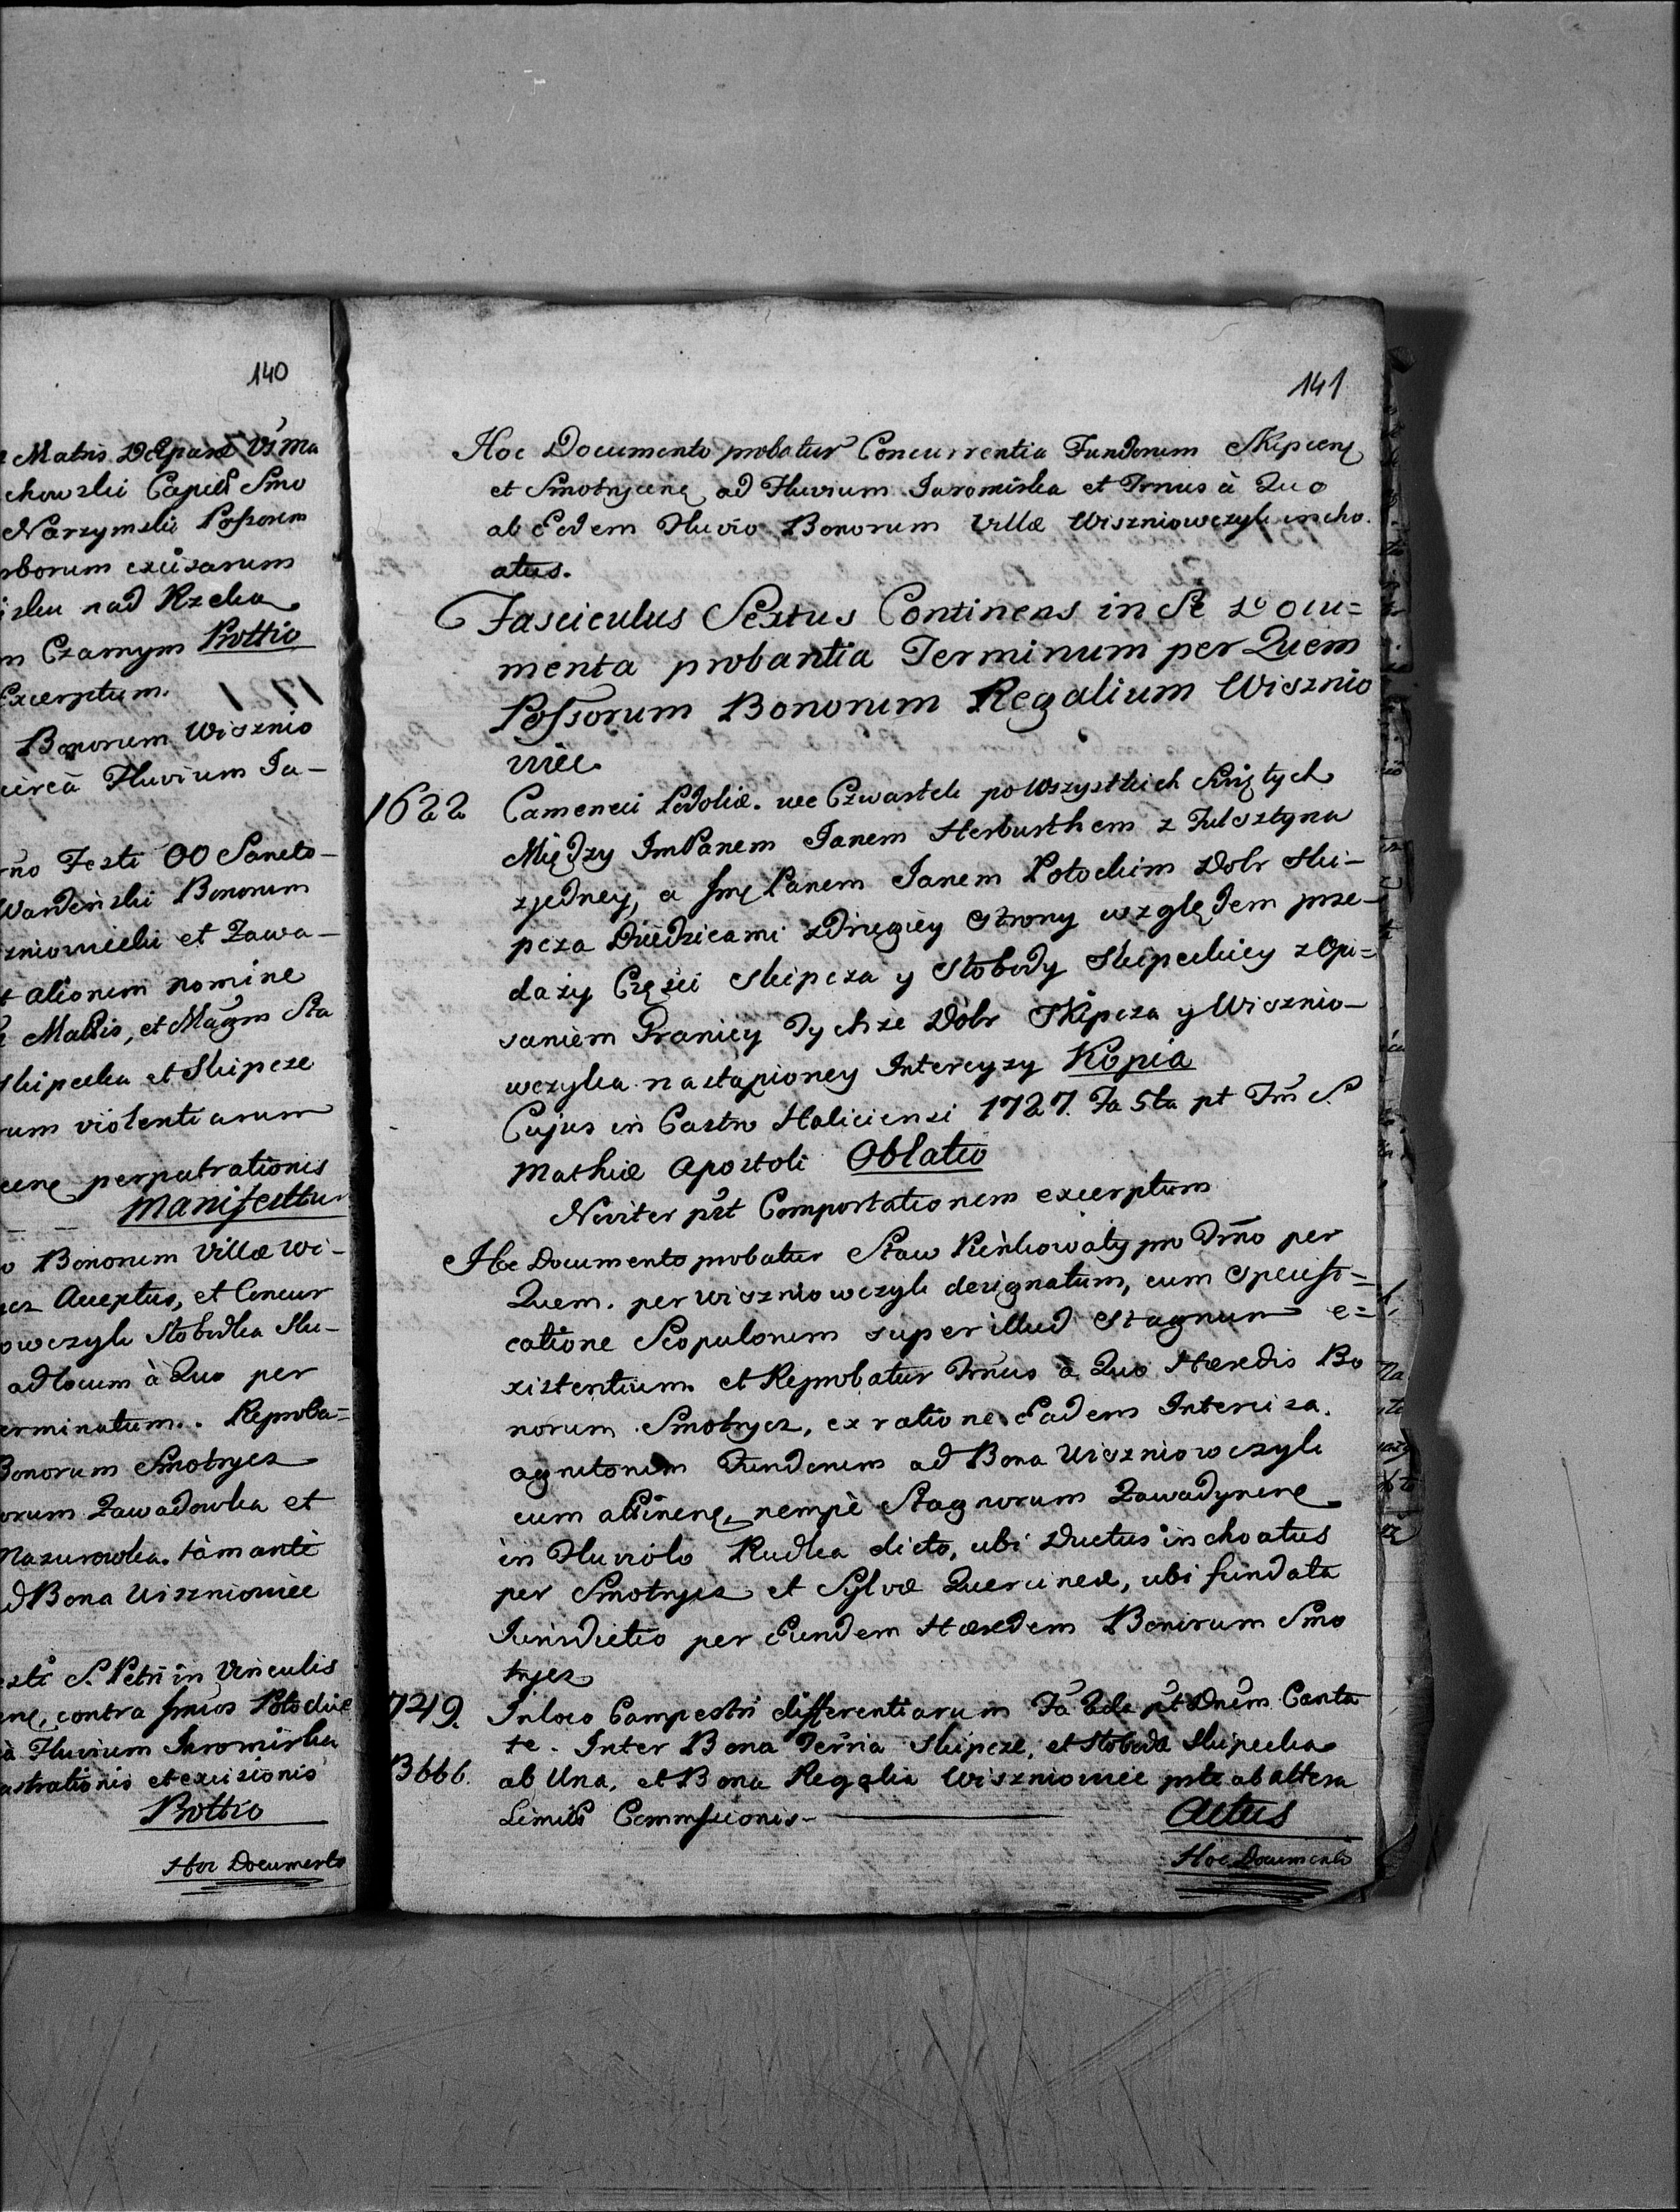 140
Matris. 
chowski Capit Smo
Narzymski Possorem
rborum excisarum
isku nad Rzeka
m Czarnym Prottio
Excerptum.
Bonorum Wisznio
circa Fluvium Ja-
Festi OO Sancto-
Bonorum
zniowiecki et Zawa-
t alionem nomine
Mattis, et Magm Sta
Skipecka et Skipcze
rum violentiarum
cenę perpatrationis
Manifesttur
o Bonorum Villæ Wi-
cz Acceptus, et Concur
owczyk Slobodka Ski-
ad locum à Quo per
erminatum. Reproba=
Bonorum Smotrycz
orum Zawadowka et
Mazurowka. tam anti
d Bona Wiszniowiec
esti S. Petri in Vinculis
enę, contra Potockie
à Fluvium Jaromirka
astrationis et excisionis
Prottio
Hoc Documento
141
Hoc Documento probatur Concurrentia Fundorum Skipcenę
et Smotrycenę ad Fluvium Jaromirka et Trnus à Quo
ab Eodem Fluvio Bonorum Villæ Wiszniowczyk incho
atus.
Fasciculus Sextus Continens in Se Docu=
menta probantia Terminum per Quem
Possorum Bonorum Regalium Wisznio
wiec.
1622 Cameneci Podoliæ. we Czwartek po Wszystkich Świętych
Między ImPanem Janem Herburthem z Fulsztyna
zjedney, a Jmę Panem Janem Potockim Dobr Ski-
pcza Dziedzicami zdrugiey Strony względem prze-
daży Części Skipcza y Słobody Skipeckiey z Opi=
saniem Graniey Tychze Dobr Skipcza y Wisznio-
wczyka nastąpioney Intercyzy Kopia
Cujus in Castro Haliciensi 1727. Fa 5ta pt Fm S.
Mathiæ Apostoli Oblatio
Noviter pst Comportationem excerptum
Hoc Documento probatur Staw Pieńkowaty pro Trno per
Quem. per Wiszniowczyk designatum, cum Specifi=
catione Scopulorum super illud Stagnum e=
xistentium. et Reprobatur Trnus à Quo Hæredis Bo
norum Smotrycz, ex ratione Eadem Intercisa.
agnitorum Fundorum ad Bona Wiszniowczyk
cum attinenę, nempè Stagnorum Zawadynenę
in Fluviolo Rudka dicto, ubi Ductus inchoatus
per Smotrycz et Sylvæ Quercineæ, ubi fundata
Jurisdictio per Eundem Hæredem Bonorum Smo
trycz
1749. In loco Campestri differentiarum Fa 2da pt Dnem Canta
te. Inter Bona Terria Skipcze, et Sloboda Skipecka
B666. ab Una, et Bona Regalia Wiszniowiec pste ab altera
Limit Commssionis Actus
Hoc Documento